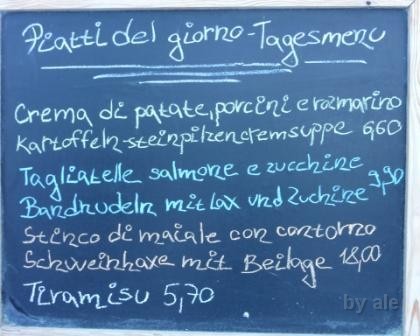 Piatti del giorno-Tagesmenu
Crema di patate, porcini e rozmarino
Kartoffeln-steinpilzencremsuppe 6,60
Tagliatelle salmone e zucchine
Bandnudeln mit Lax und Zuchine 9,90
Stinco di maiale con contorno
Schweinhaxe mit Beilage 18,00
Tiramisu 5,70
by ale